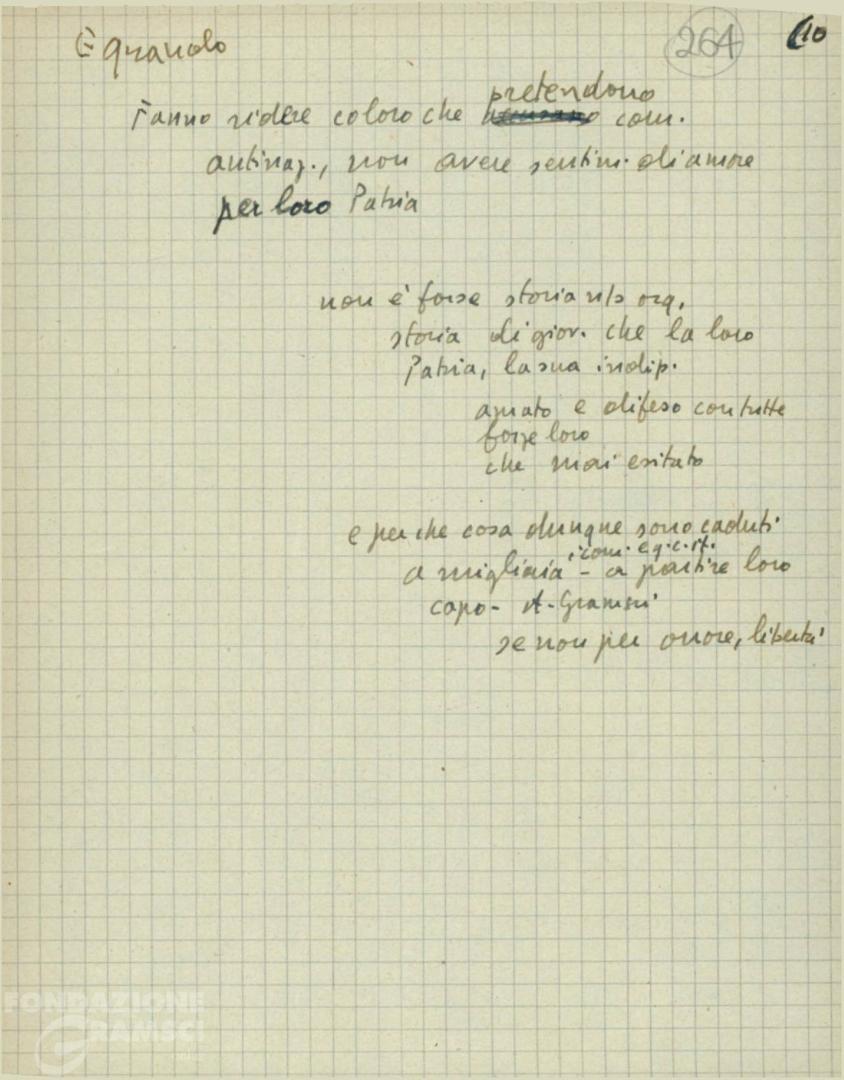 264 (10
È grando
pretendono
Fanno ridere coloro che com.
antinaz., non avere sentim. di amore
per loro Patria
non è forse storia ns org.
storia di giov. che la loro
Patria, la sua indip.
amato e difeso con tutte
forze loro
che mai esitato
e per che cosa dunque sono caduti
, com. e q. c. it.
a migliaia - a partire loro
capo - A. Gramsci
se non per onore, libertà
FONDAZIONE
GRAMSCI